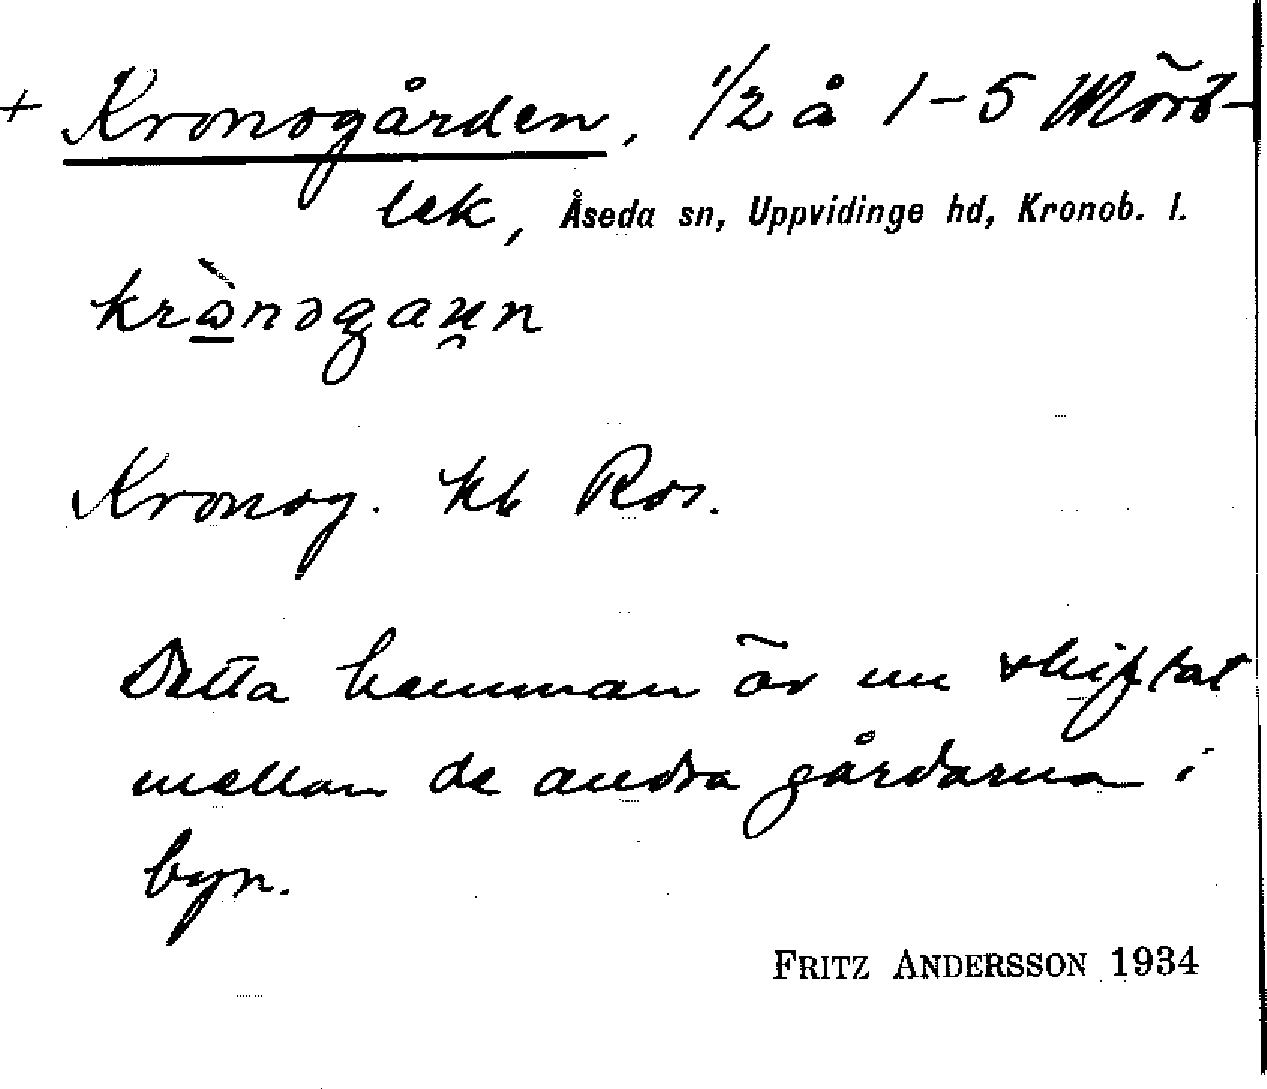 + Kronogården, 1/2 å 1-5 Mörb-
lek, Åseda sn, Uppvidinge hd, Kronob. l.
Kronog. kb Ros.
Detta hemman är nu skiftat
mellan de andra gårdarna i
byn.
FRITZ ANDERSSON 1934